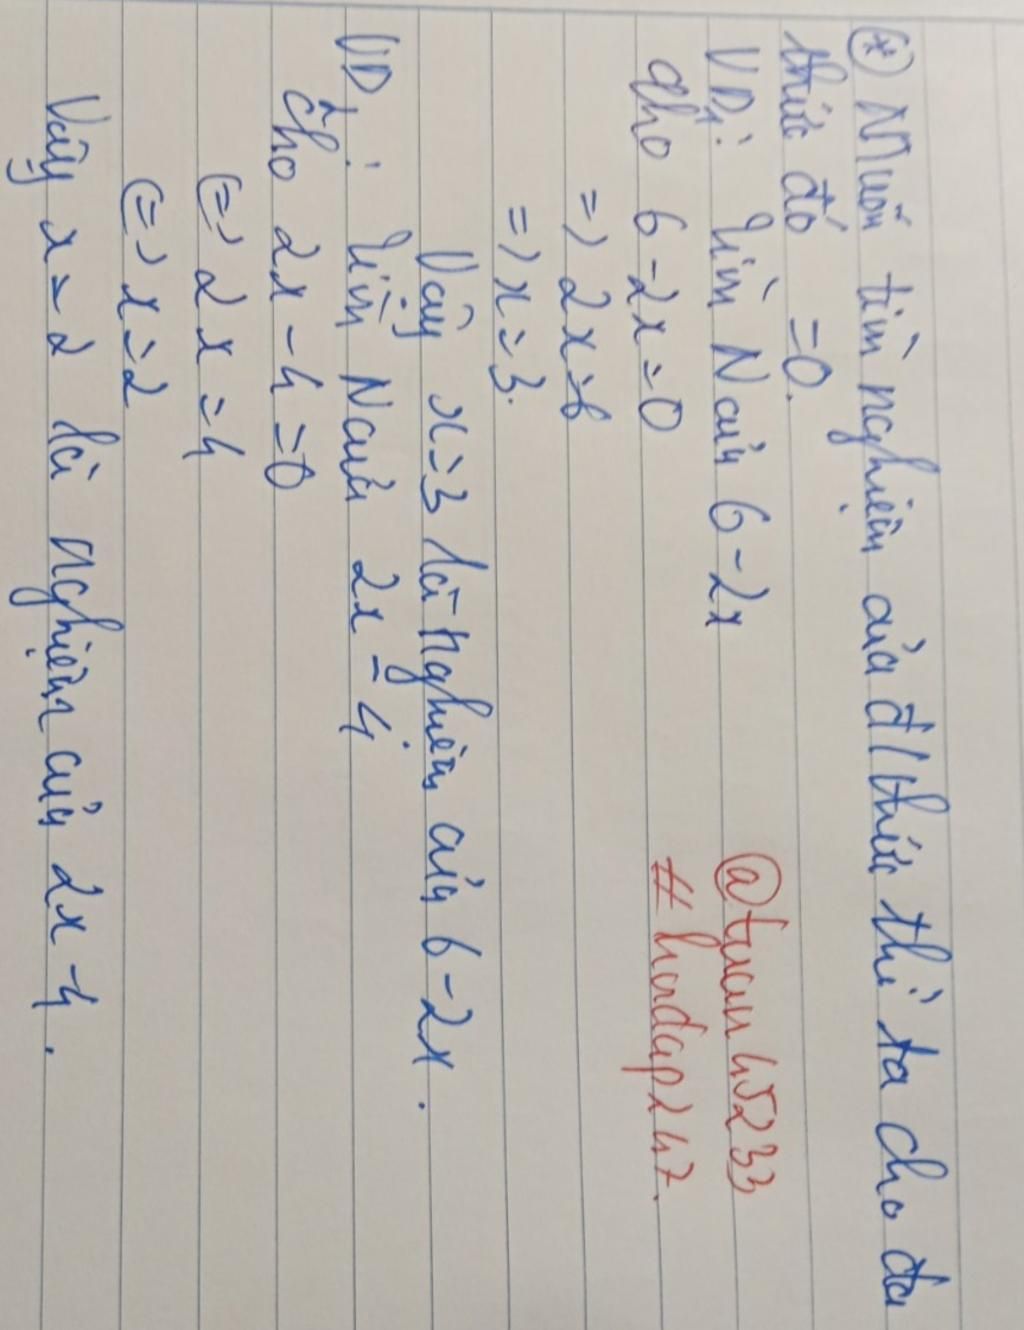 (*) Muốn tìm nghiệm của đ/thức thì ta cho đa
thức đó =0.
VD1: Tìm N của 6-2x
@tuan45233
Cho 6-2x=0
#hoidap247.
=> 2x=6
=> x=3.
Vậy x=3 là nghiệm của 6-2x.
VD2: Tìm N của 2x-4.
Cho 2x-4=0
(=) 2x=4
(=) x=2
Vậy x=2 là nghiệm của 2x-4.